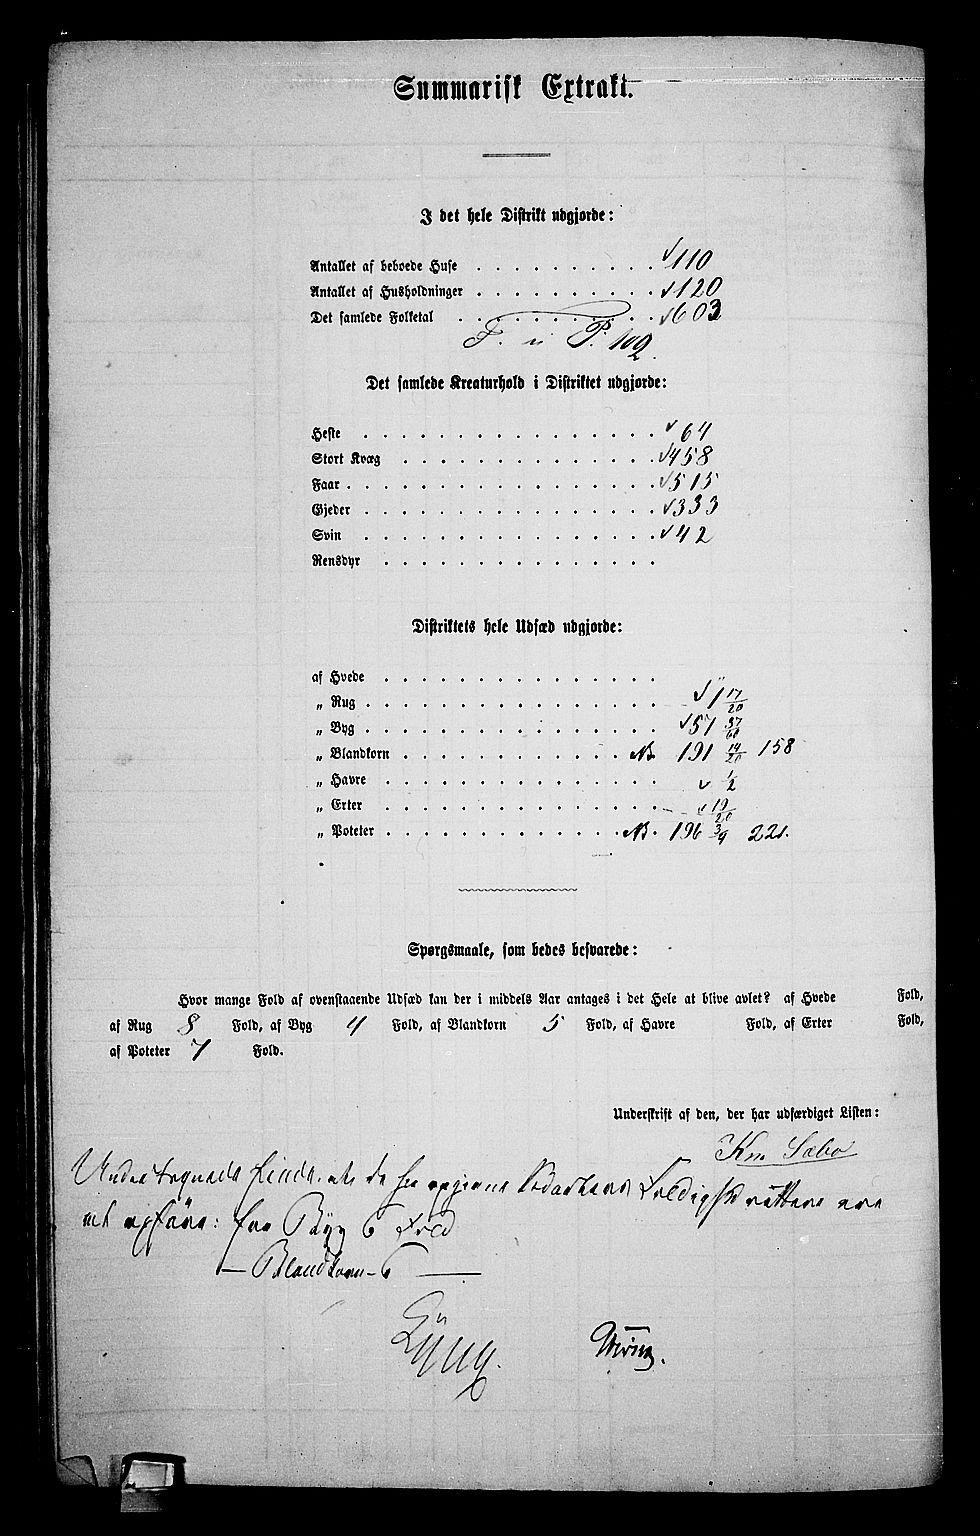 Summarisk Extrakt.
I det hele Distrikt udgjorde:
Antallet af beboede Huse . . . . . . . . . . √110
Antallet af Husholdninger . . . . . . . . . . √120
Det samlede Folketal . . . . . . . . . . √603
F. u P. 102.
Det samlede Kreaturhold i Distriktet udgjorde:
Heste . . . . . . . . . . √64
Stort Kvæg . . . . . . . . . . √458
Faar . . . . . . . . . . √515
Gjeder . . . . . . . . . . √333
Svin . . . . . . . . . . √42
Rensdyr . . . . . . . . . .
Distriktets hele Udsæd udgjorde:
af Hvede . . . . . . . . . . "
„ Rug . . . . . . . . . . √1 17/20
„ Byg . . . . . . . . . . √57 37/60
„ Blandkorn . . . . . . . . . . NB. 191 14/20 158
„ Havre . . . . . . . . . . √ 1/2
„ Erter . . . . . . . . . . √ 19/20
„ Poteter . . . . . . . . . . NB. 196 3/9 221.
Spørgsmaale, som bedes besvarede:
Hvor mange Fold af ovenstaaende Udsæd kan der i middels Aar antages i det Hele at blive avlet? af Hvede Fold,
af Rug 8 Fold, af Byg 4 Fold, af Blandkorn 5 Fold, af Havre Fold, af Erter Fold,
af Poteter 7 Fold.
Underskrift af den, der har udfærdiget Listen:
Kn Sæbø
Undertegnede finde, at de her opgivne Foldighed rettere ere
at opføre: for Byg 6 Fold
— Blandkorn - 6 —